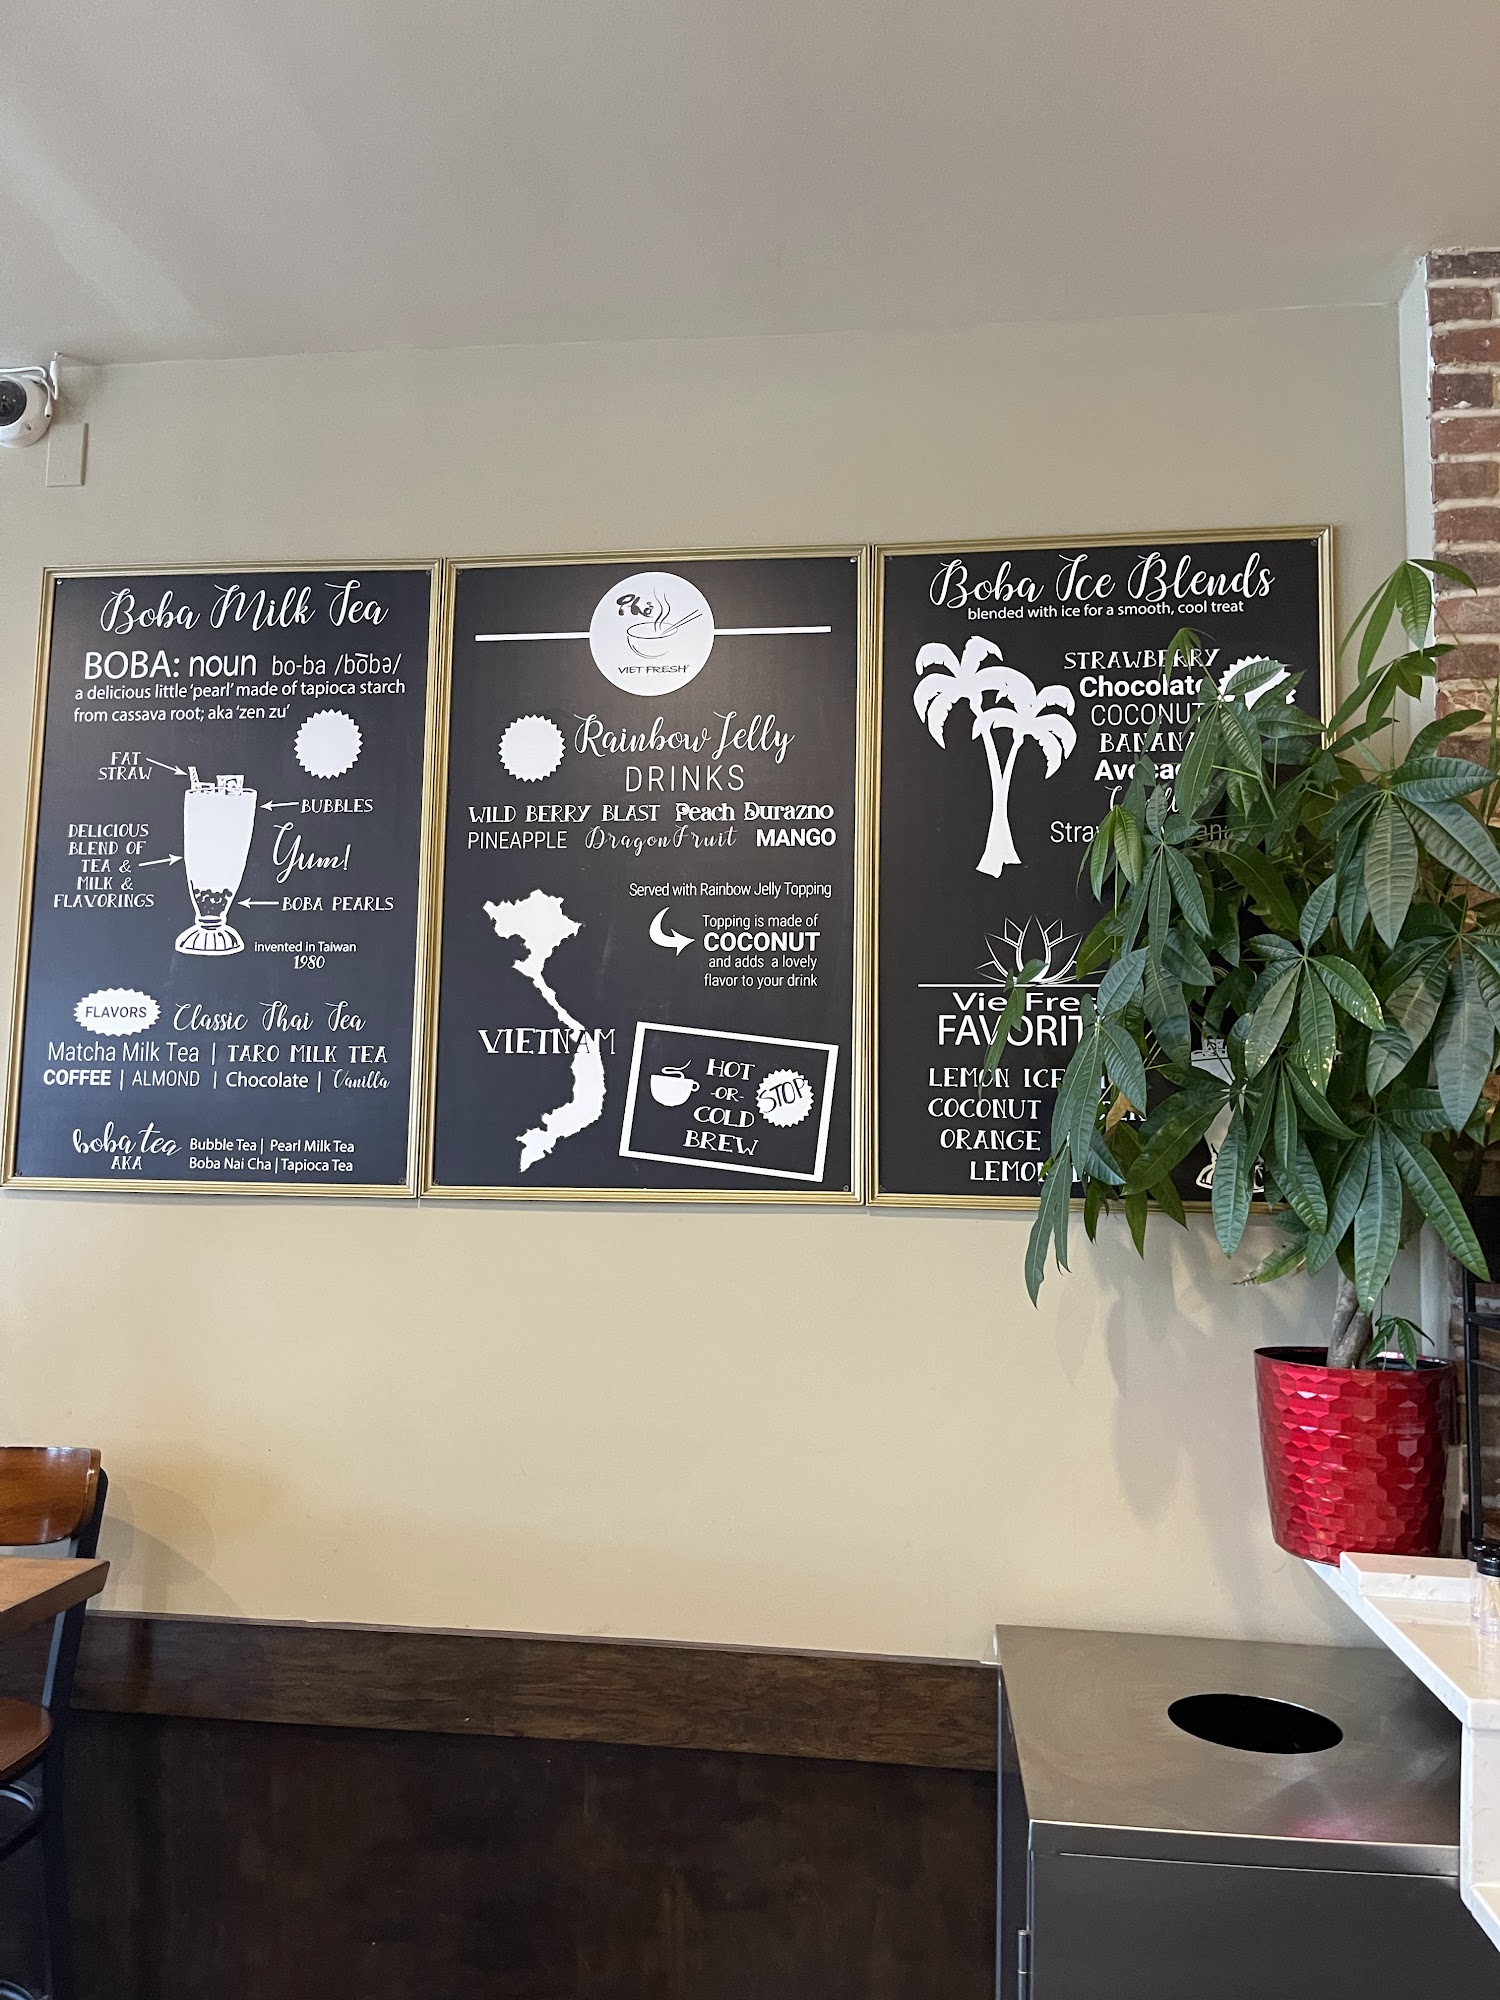 Boba Milk Tea
BOBA: noun bo-ba /bōbə/
a delicious little 'pearl' made of tapioca starch
from cassava root; aka 'zen zu'
FAT
STRAW
BUBBLES
DELICIOUS
BLEND OF
TEA &
MILK &
FLAVORINGS
Yum!
BOBA PEARLS
invented in Taiwan
1980
FLAVORS Classic Thai Tea
Matcha Milk Tea | TARO MILK TEA
COFFEE | ALMOND | Chocolate | Vanilla
boba tea
AKA
Bubble Tea | Pearl Milk Tea
Boba Nai Cha | Tapioca Tea
Phở
VIET FRESH
Rainbow Jelly
DRINKS
WILD BERRY BLAST Peach Durazno
PINEAPPLE Dragon Fruit MANGO
Served with Rainbow Jelly Topping
Topping is made of
COCONUT
and adds a lovely
flavor to your drink
VIETNAM
HOT
-OR-
COLD
BREW
STOP
Boba Ice Blends
blended with ice for a smooth, cool treat
STRAWBERRY
Chocolate
COCONUT
BANANA
Viet
LEMON
COCONUT
ORANGE